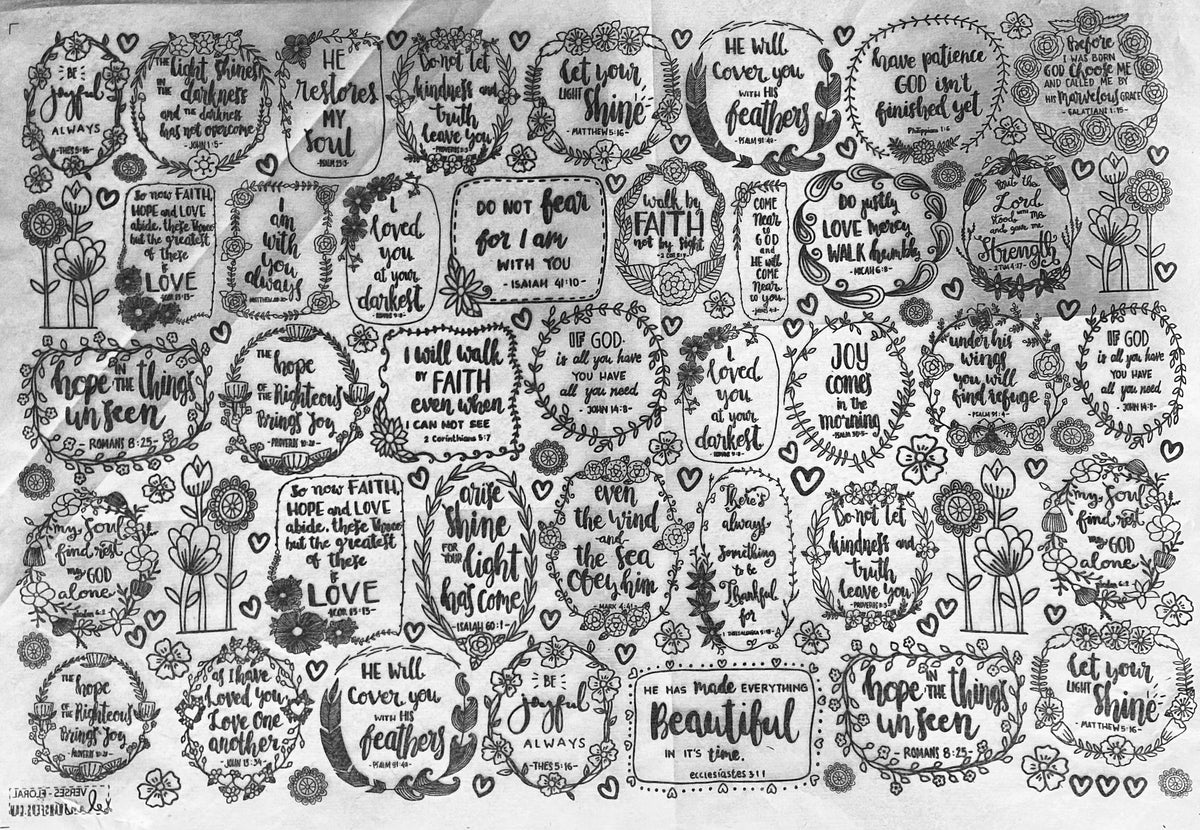 -BE-
joyful
ALWAYS
-THES 5:16-
THE
light shines
IN THE
darkness
and THE darkness
has not overcome
-JOHN 1:5-
HE
restores
MY
Soul
-PSALM 23:3-
Do not let
kindness and
truth
leave you
-PROVERBS 3:3-
let your
LIGHT Shine
-MATTHEW 5:16-
HE will
Cover you
WITH HIS
feathers
-PSALM 91:4-
have patience
GOD isn't
finished yet
Philippians 1:6
Before
I WAS BORN
GOD Choose ME
AND CALLED ME BY
HIS Marvelous GRACE
-GALATIANI 1:15-
So now FAITH,
HOPE and LOVE
abide, these three
but the greatest
of these
is
LOVE
1COR 13:13-
I
am
with
you
always
I
loved
you
at your
darkest
-ROMANS 5:8-
DO NOT fear
for I am
WITH YOU
-ISAIAH 41:10-
walk by
FAITH
not by sight
-2 COR 5:7-
COME
Near
to
GOD
and
HE will
COME
Near
to you
Do justly
LOVE mercy
WALK humbly
-MICAH 6:8-
But the
Lord
stood with me
and gave me
Strength
-2 TIM 4:17-
hope IN THE things
unseen
-ROMANS 8:25-
THE
hope
OF THE Righteous
Brings Joy
-PROVERBS 10:28-
I will walk
BY FAITH
even when
I CAN NOT SEE
2 Corinthians 5:7
IF GOD
is all you have
YOU HAVE
all you need
-JOHN 14:8-
I
loved
you
at your
darkest
-ROMANS 5:8-
JOY
comes
in the
morning
-PSALM 30:5-
under his
wings
you will
find refuge
-PSALM 91:4-
IF GOD
is all you have
YOU HAVE
all you need
-JOHN 14:8-
my Soul
find rest
in my GOD
alone
So now FAITH,
HOPE and LOVE
abide, these three
but the greatest
of these
is
LOVE
1COR 13:13-
arise
Shine
FOR YOUR light
has come
-ISAIAH 60:1-
even
the wind
-and-
the sea
Obey him
-MARK 4:41-
There's
always
Something
to be
Thankful
for
1 THESSALONIANS 5:18-
Do not let
kindness and
truth
leave you
-PROVERBS 3:3-
my Soul
find rest
in my GOD
alone
THE
hope
OF THE Righteous
Brings Joy
-PROVERBS 10:28-
as I have
Loved you
Love One
another
-JOHN 13:34-
HE will
Cover you
WITH HIS
feathers
-PSALM 91:4-
-BE-
joyful
ALWAYS
-THES 5:16-
HE HAS made EVERYTHING
Beautiful
IN IT'S time.
ecclesiastes 3:11
hope IN THE things
unseen
-ROMANS 8:25-
let your
LIGHT Shine
-MATTHEW 5:16-
VERSES - FLORAL